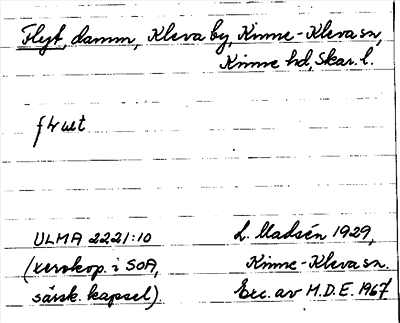 Flyt, damm, Kleva by, Kinne-Kleva sn,
Kinne hd, Skar. l.
ULMA 2221:10
L. Madsén 1929,
(xerokop. i SOA,
Kinne-Kleva sn.
särsk. kapsel).
Exc. av M.D.E. 1967